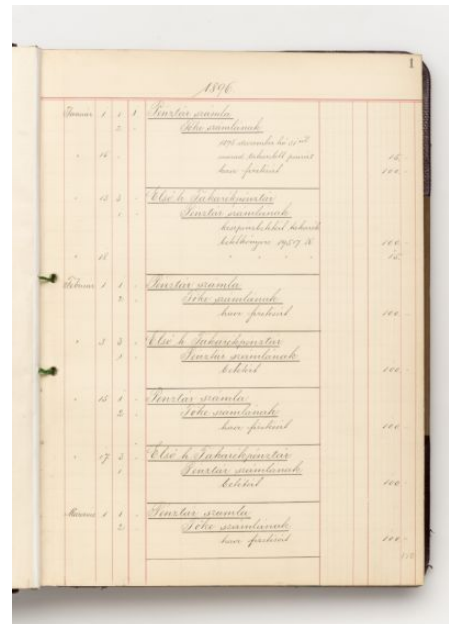 1
1896.
Január 1 1 1 Pénztár számla
2 Tőke számlának
1895 december hó 31
16
15.-
havi fizetésül 100.-
15 3 Első h. Takarékpénztár
1 Pénztár számlának
100.-
16 15.-
Február 1 1 Pénztár számla
2 Tőke számlának
havi fizetésül 100.-
" 3 3 Első h. Takarékpénztár
1 Pénztár számlának
betétül 100.-
" 15 1 Pénztár számla
2 Tőke számlának
havi fizetésül 100.-
" 17 3 Első h. Takarékpénztár
1 Pénztár számlának
betétül 100.-
Március 1 1 Pénztár számla
2 Tőke számlának
havi fizetésül 100.-